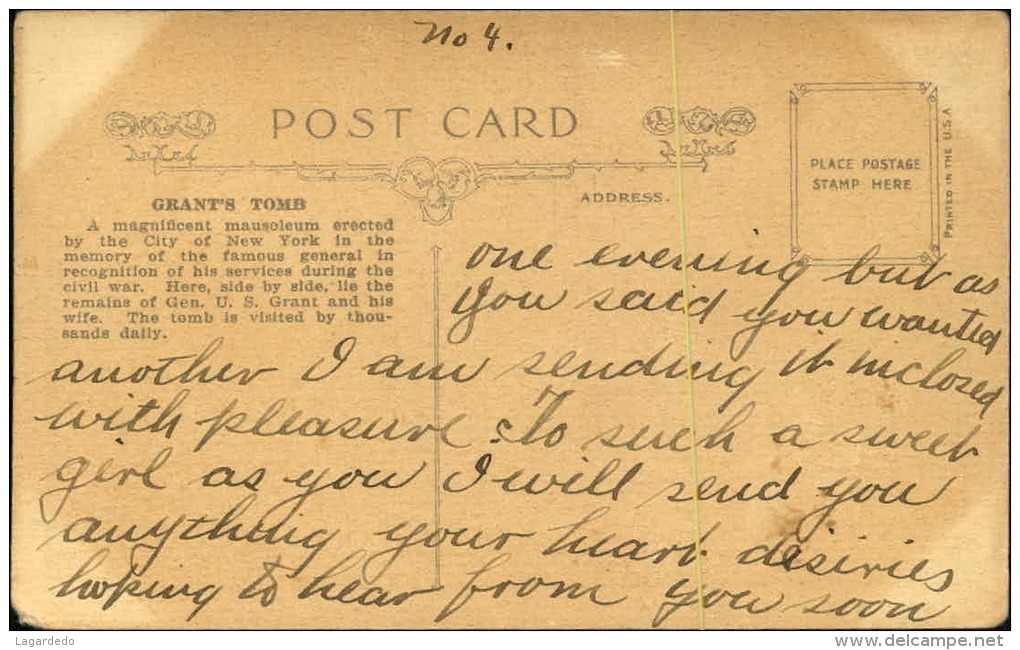 No 4.
POST CARD
PLACE POSTAGE
STAMP HERE
PRINTED IN THE U.S.A
ADDRESS.
GRANT'S TOMB
A magnificent mausoleum erected
by the City of New York in the
memory of the famous general in
recognition of his services during the
civil war. Here, side by side, lie the
remains of Gen. U. S. Grant and his
wife. The tomb is visited by thou-
sands daily.
one evening but as
you said you wanted
another I am sending it inclosed
with pleasure. To such a sweet
girl as you I will send you
anything your heart desiries
hoping to hear from you soon
Lagardedo
delcampe.net